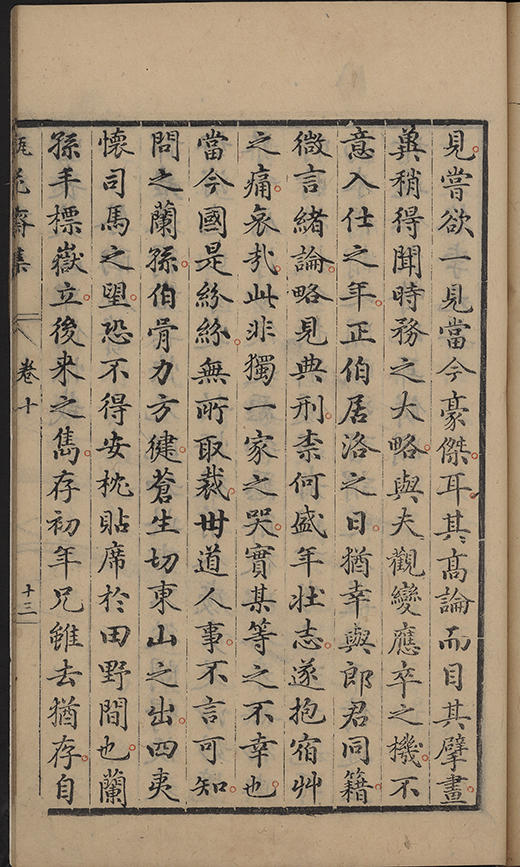 見嘗欲一見當今豪傑耳其高論而目其擘畫
冀稍得聞時務之大略與夫觀變應卒之機不
意入仕之年正伯居洛之日猶幸與郎君同籍
微言緒論略見典刑柰何盛年壯志遂抱宿艸
之痛哀㢤此非獨一家之哭實某等之不幸也
當今國是紛紛無所取裁世道人事不言可知
問之蘭孫伯骨力方健蒼生切東山之出四夷
懷司馬之望恐不得安枕貼席於田野間也蘭
孫丰標嶽立後来之雋存初年兄雖去猶存自
瓶花齋集
卷十
十三